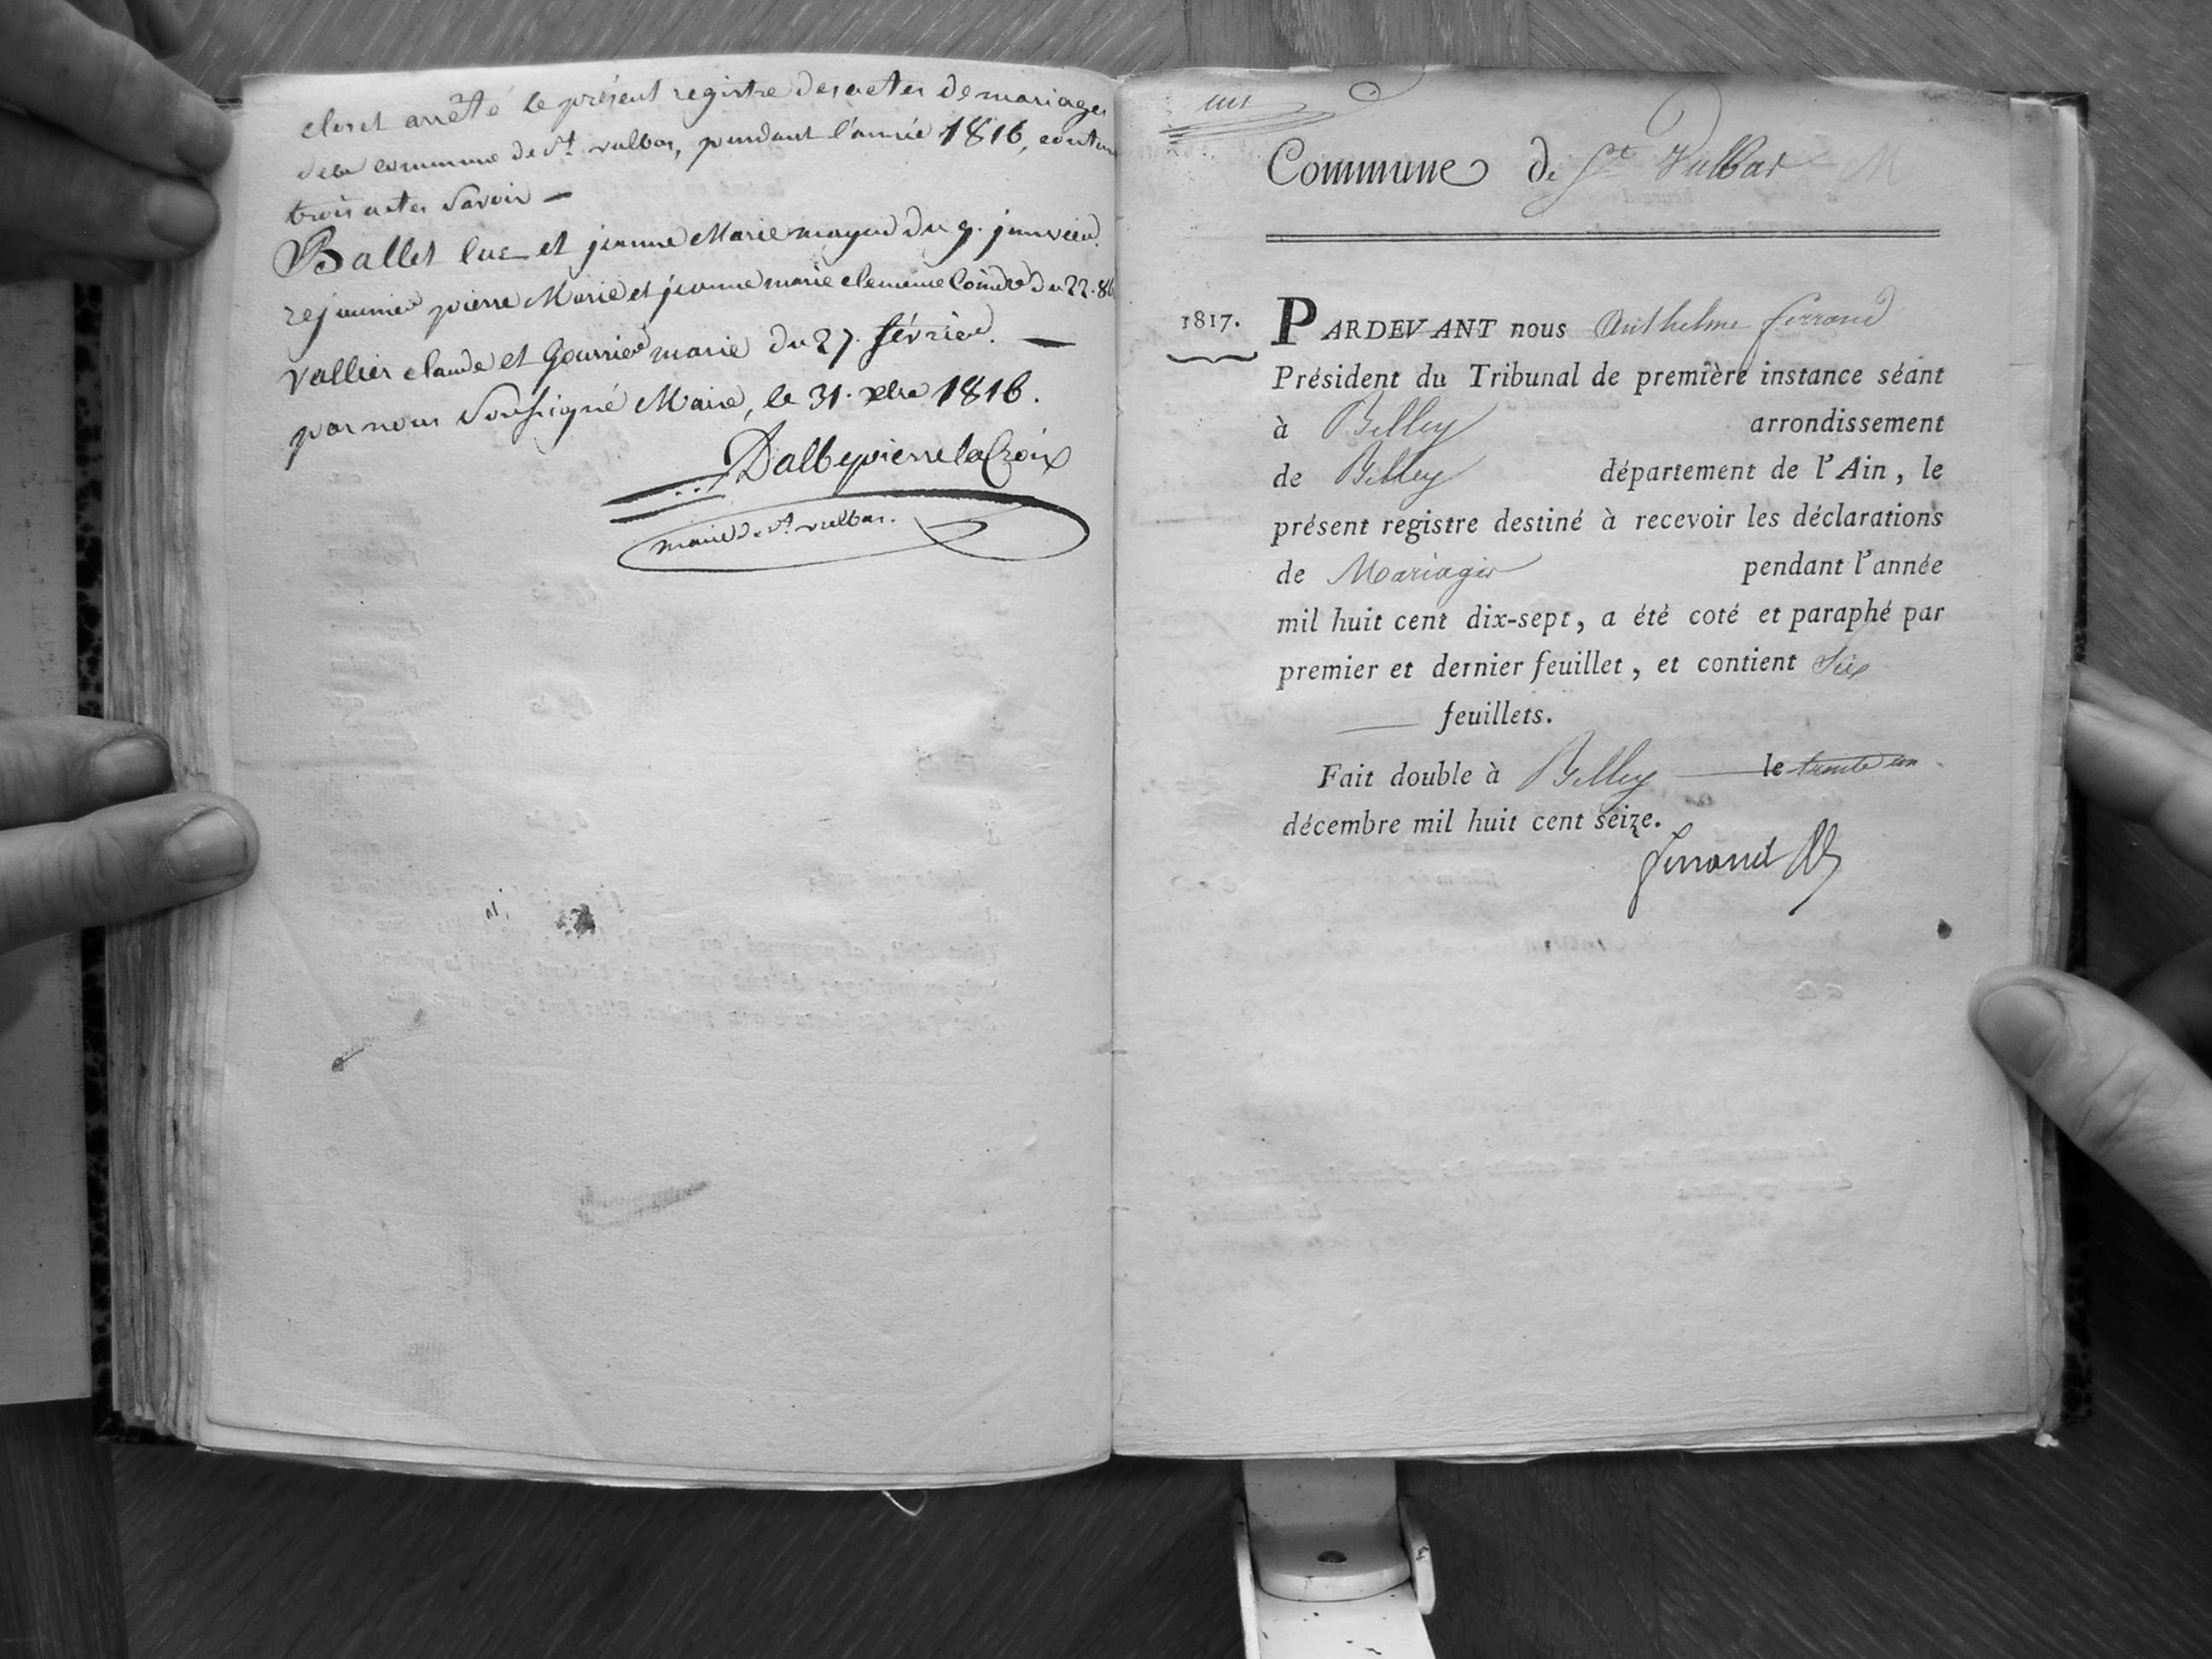 clos et arrêté le présent registre des actes de mariages
de la commune de St vulbas, pendant l'année 1816, contenant
trois actes Savoir —
Ballet luc et jeanne Marie du 9. janvier.
pierre Marie et jeanne marie du 22.
vallier claude et marie du 27. février. —
par nous Soussigné Maire, le 31. xbre 1816.
Dalbepierre la Croix
maire de St vulbas.
un
Commune de St Vulbas M
1817. PARDEVANT nous Anthelme ferrand
Président du Tribunal de première instance séant
à Belley arrondissement
de Belley département de l'Ain, le
présent registre destiné à recevoir les déclarations
de Mariages pendant l'année
mil huit cent dix-sept, a été coté et paraphé par
premier et dernier feuillet, et contient Six
feuillets.
Fait double à Belley le trente un
décembre mil huit cent seize.
ferrand